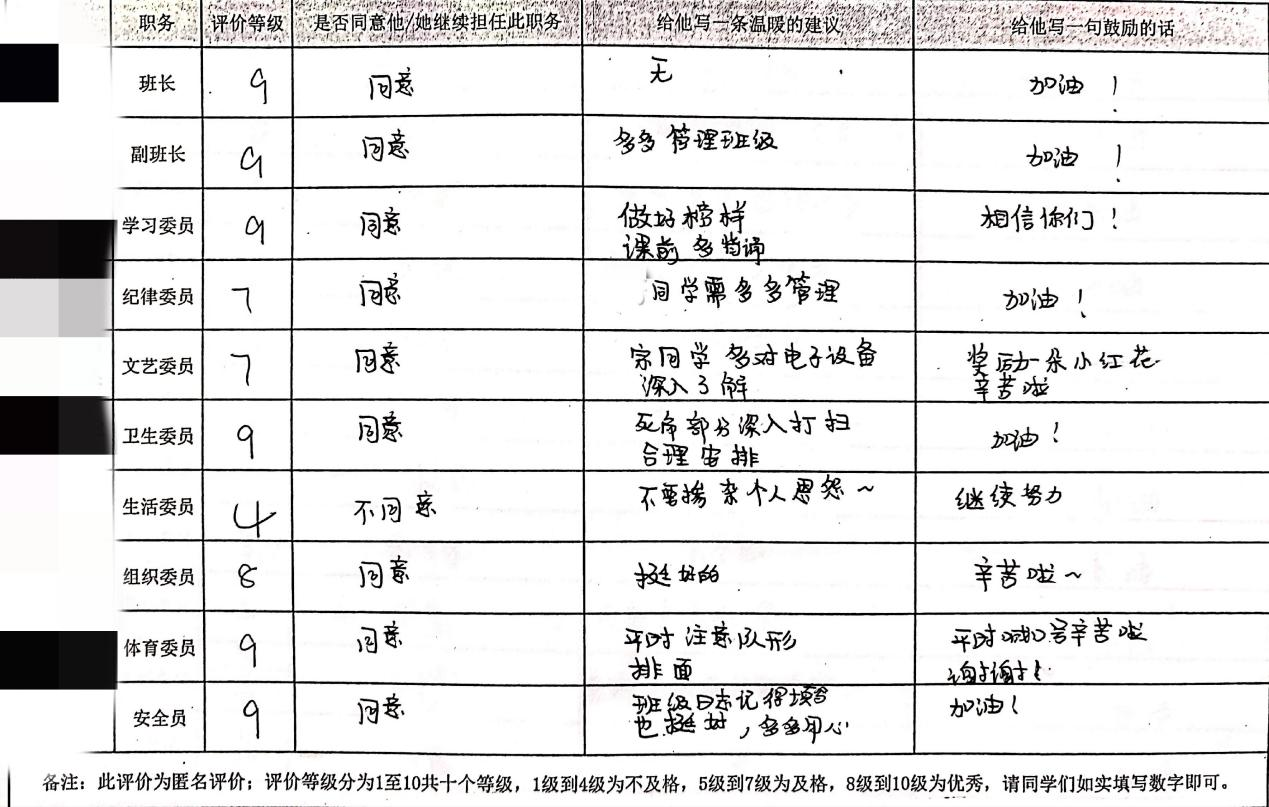 职务 评价等级 是否同意他/她继续担任此职务 给他写一条温暖的建议 给他写一句鼓励的话
班长 9 同意 无 加油！
副班长 9 同意 多多管理班级 加油！
学习委员 9 同意 做好榜样 相信你们！
课前多背诵
纪律委员 7 同意 同学需多多管理 加油！
文艺委员 7 同意 宗同学多对电子设备 奖励一朵小红花
深入了解 辛苦啦
卫生委员 9 同意 死角部分深入打扫 加油！
合理安排
生活委员 4 不同意 不要掺杂个人恩怨～ 继续努力
组织委员 8 同意 挺好的 辛苦啦～
体育委员 9 同意 平时注意队形 平时喊口号辛苦啦
排面 谢谢！
安全员 9 同意 班级日志记得 加油！
也挺好，多多用心
备注：此评价为匿名评价；评价等级分为1至10共十个等级，1级到4级为不及格，5级到7级为及格，8级到10级为优秀，请同学们如实填写数字即可。